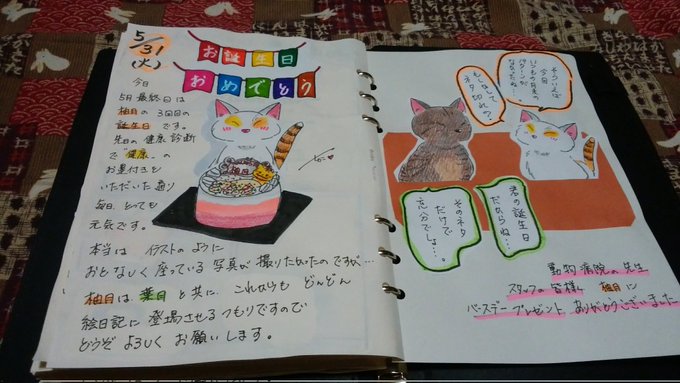 5/31
(火)
お誕生日
おめでとう
今日
5月最終日は
柚月の3回目の
誕生日です。
先日の健康診断
で"健康"の
お墨付きも
いただいた通り
毎日、とっても
元気です。
本当は イラストのように
おとなしく座っている写真が撮りたかったのですが…
柚月は葉月と共に、これからもどんどん
絵日記に登場させるつもりですので
どうぞよろしくお願いします。
そういえば
今日
いつもの月末の
パターンが
なかったね…
もしかして
ネタ切れ?
君の誕生日
だからね…
そのネタ
だけで
充分でしょ…。
動物病院の先生
スタッフの皆様 柚月に
バースデープレゼント、ありがとうございました